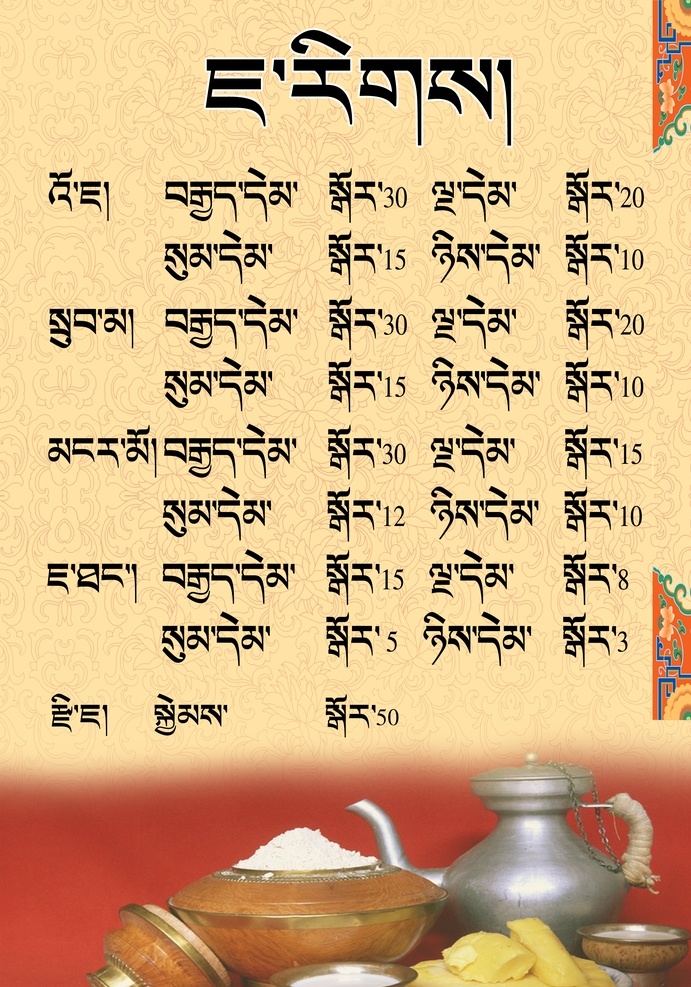 ཇ་རིགས།
འོ་ཇ། བརྒྱད་དེམ་ སྒོར་30 ལྔ་དེམ་ སྒོར་20
སུམ་དེམ་ སྒོར་15 ཉིས་དེམ་ སྒོར་10
སྲུབ་མ། བརྒྱད་དེམ་ སྒོར་30 ལྔ་དེམ་ སྒོར་20
སུམ་དེམ་ སྒོར་15 ཉིས་དེམ་ སྒོར་10
མངར་མོ། བརྒྱད་དེམ་ སྒོར་30 ལྔ་དེམ་ སྒོར་15
སུམ་དེམ་ སྒོར་12 ཉིས་དེམ་ སྒོར་10
ཇ་ཐང་། བརྒྱད་དེམ་ སྒོར་15 ལྔ་དེམ་ སྒོར་8
སུམ་དེམ་ སྒོར་ 5 ཉིས་དེམ་ སྒོར་3
རྫི་ཇ། སྐྱེམས་ སྒོར་50